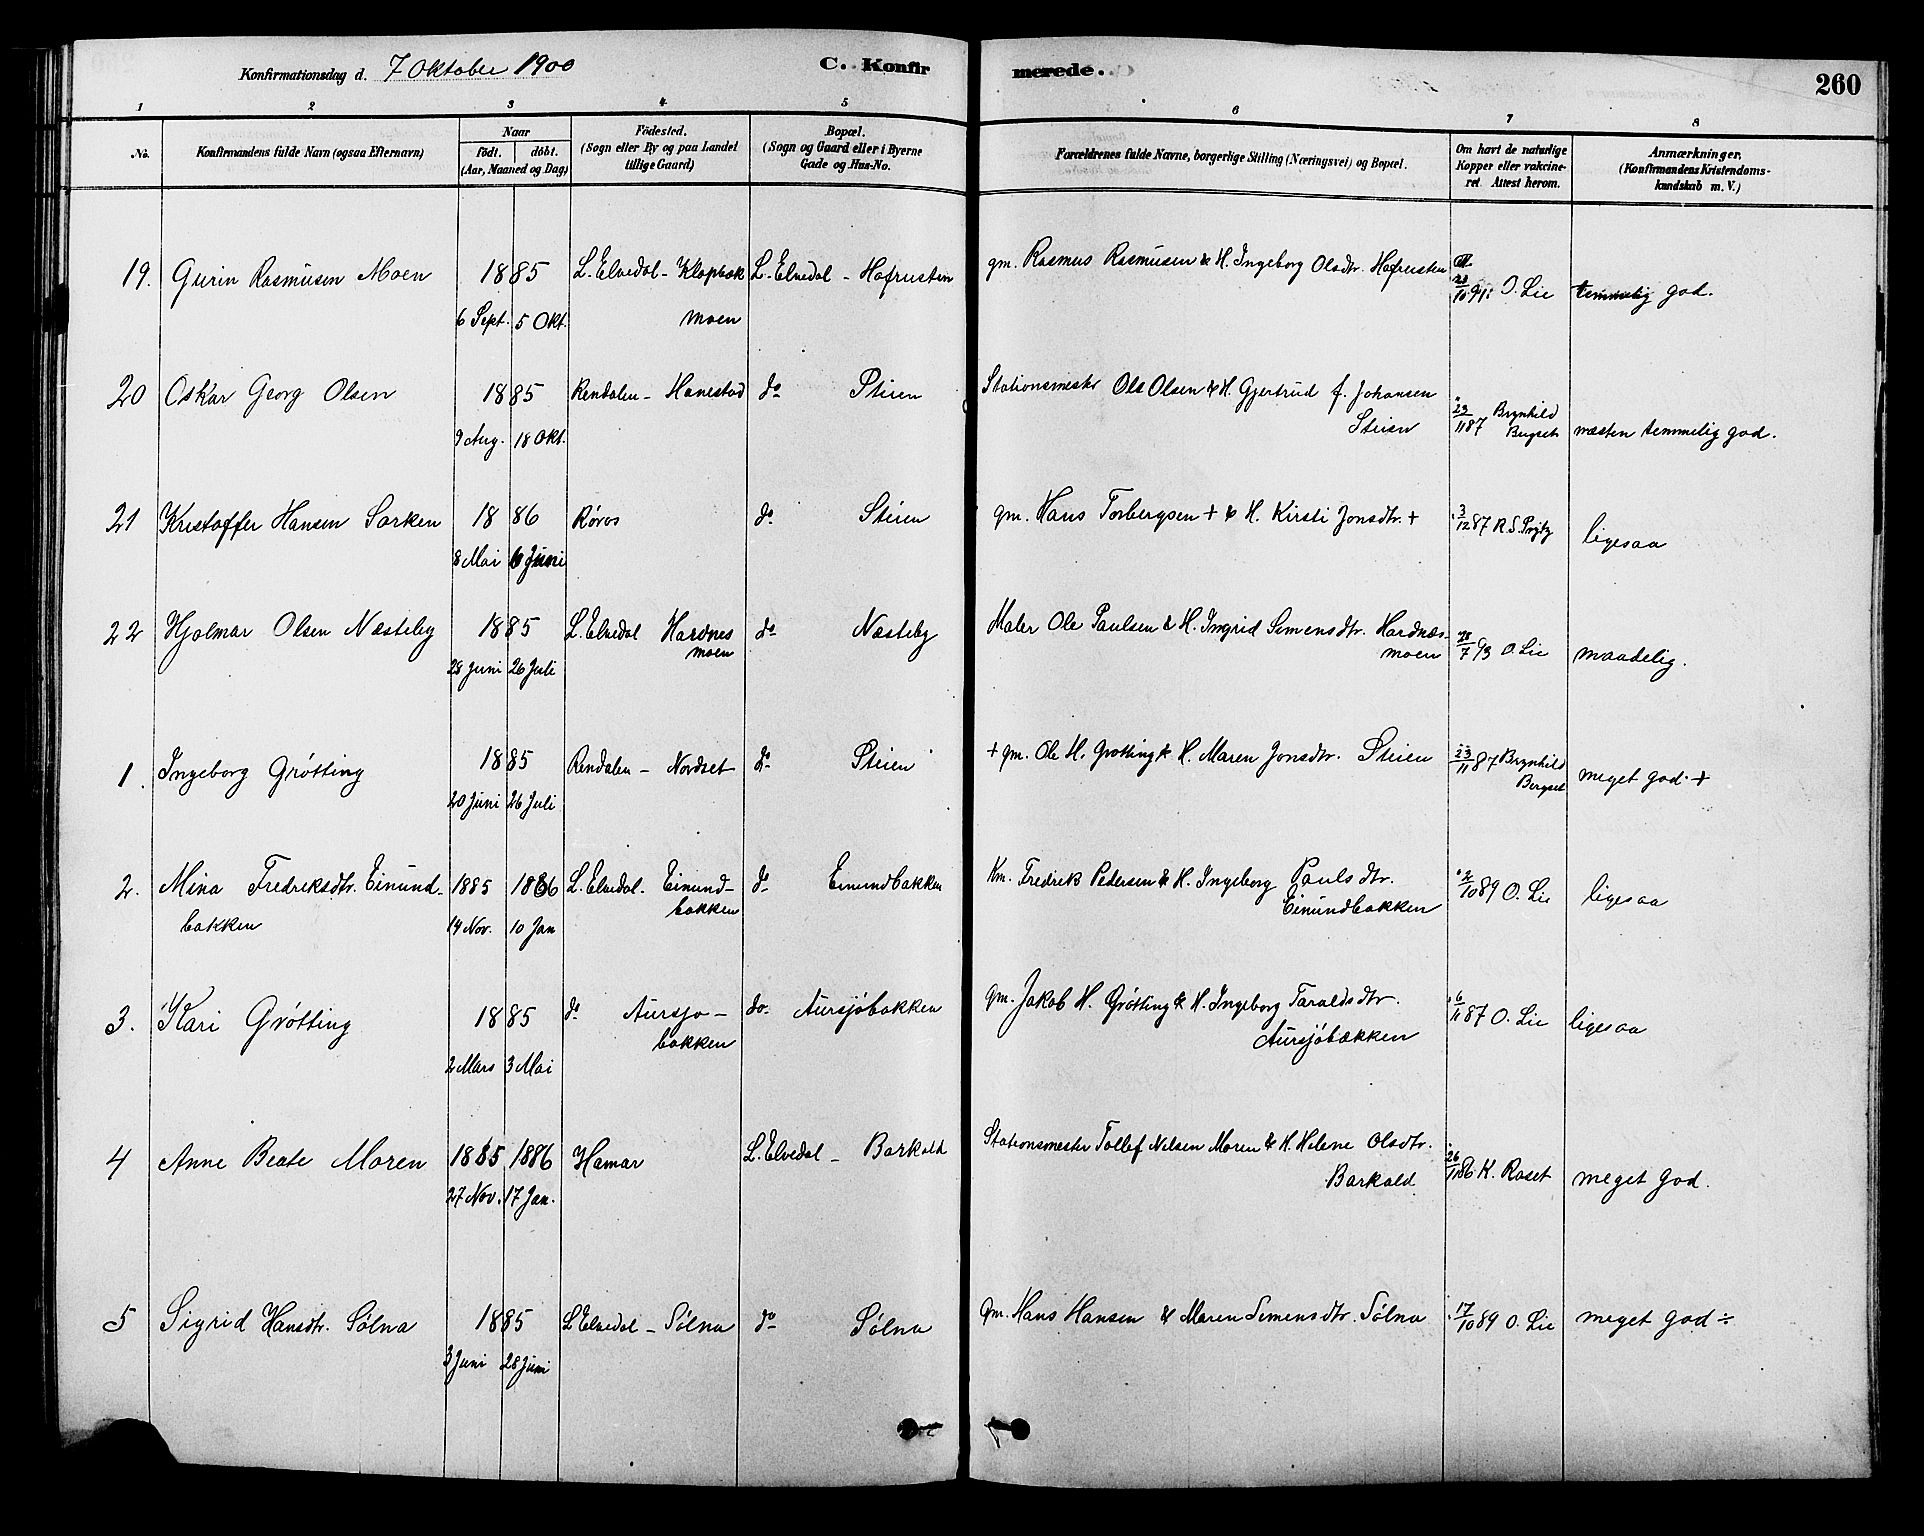 Konfirmationsdag d. 7 Oktober 1900 C. Konfirmerede. 260
1 2 3 4 5 6 7 8
No. Konfirmandens fulde Navn (ogsaa Efternavn) Naar födt. döbt. (Aar, Maaned og Dag) Födested. (Sogn eller By og paa Landet tillige Gaard) Bopæl. (Sogn og Gaard eller i Byerne Gade og Hus-No. Forældrenes fulde Navne, borgerlige Stilling (Næringsvei) og Bopæl. Om havt de naturlige Kopper eller vakcineret. Attest herom. Anmærkninger, (Konfirmandens Kristendomskundskab m. V.)
19. Gurin Rasmusen Moen 1885 L. Elvedal - Klopbak L. Elvedal - Hafrusten gm. Rasmus Rasmusen & H. Ingeborg Olsdtr. Hafrusten 10 91 O. Lie temmelig god.
6 Sept. 5 Okt. moen
20 Oskar Georg Olsen 1885 Rendalen - Hanestad do Stiien Stationsmester Ole Olsen & H. Gjertrud f. Johansen 23/11 87 Brynhild
9 Aug. 18 Okt. Steien Bergset næsten temmelig god.
21 Kristoffer Hansen Sorken 1886 Röros do Steien gm. Hans Torbergsen + & H. Kirsti Jonsdtr. + 3/12 87 R. S. Prytz ligesaa
8 Mai 6 Juni
22 Hjalmar Olsen Næsteby 1885 L. Elvedal Hardnes do Næsteby Maler Ole Paulsen & H. Ingrid Simensdtr. Hardnæs- 7 93 O. Lie maadelig.
28 Juni 26 Juli moen moen
1. Ingeborg Grötting 1885 Rendalen - Nordset do Steien + gm. Ole H. Grotting & H. Maren Jonsdtr. Steien 23/11 87 Brynhild meget god +
20 Juni 26 Juli Bergset
2. Mina Fredriksdtr. Einund- 1885 1886 L. Elvedal. Einund- do Einundbakken Km. Fredrik Pedersen & H. Ingeborg Paulsdtr. 2/10 89 O. Lie ligesaa
bakken 14 Nov. 10 Jan bakken Einundbakken
3. Kari Grötting 1885 do Aursjo- do Aursjöbakken gm. Jakob H. Grötting & H. Ingeborg Taraldsdtr. 6/11 87 O. Lie ligesaa
2 Mars 3 Mai bakken Aursjöbækken
4 Anne Beate Moren 1885 1886 Hamar L. Elvedal - Barkald Stationsmester Tollef Nilsen Moren & H. Helene Olsdtr. 26/11 86 K. Roset meget god.
27 Nov. 17 Jan. Barkald
5 Sigrid Hansdtr. Sölna 1885 L. Elvedal - Sölna do Sölna gm. Hans Hansen & Maren Simensdtr. Sölna 17/10 89 O. Lie meget god ÷
3 Juni 28 Juni